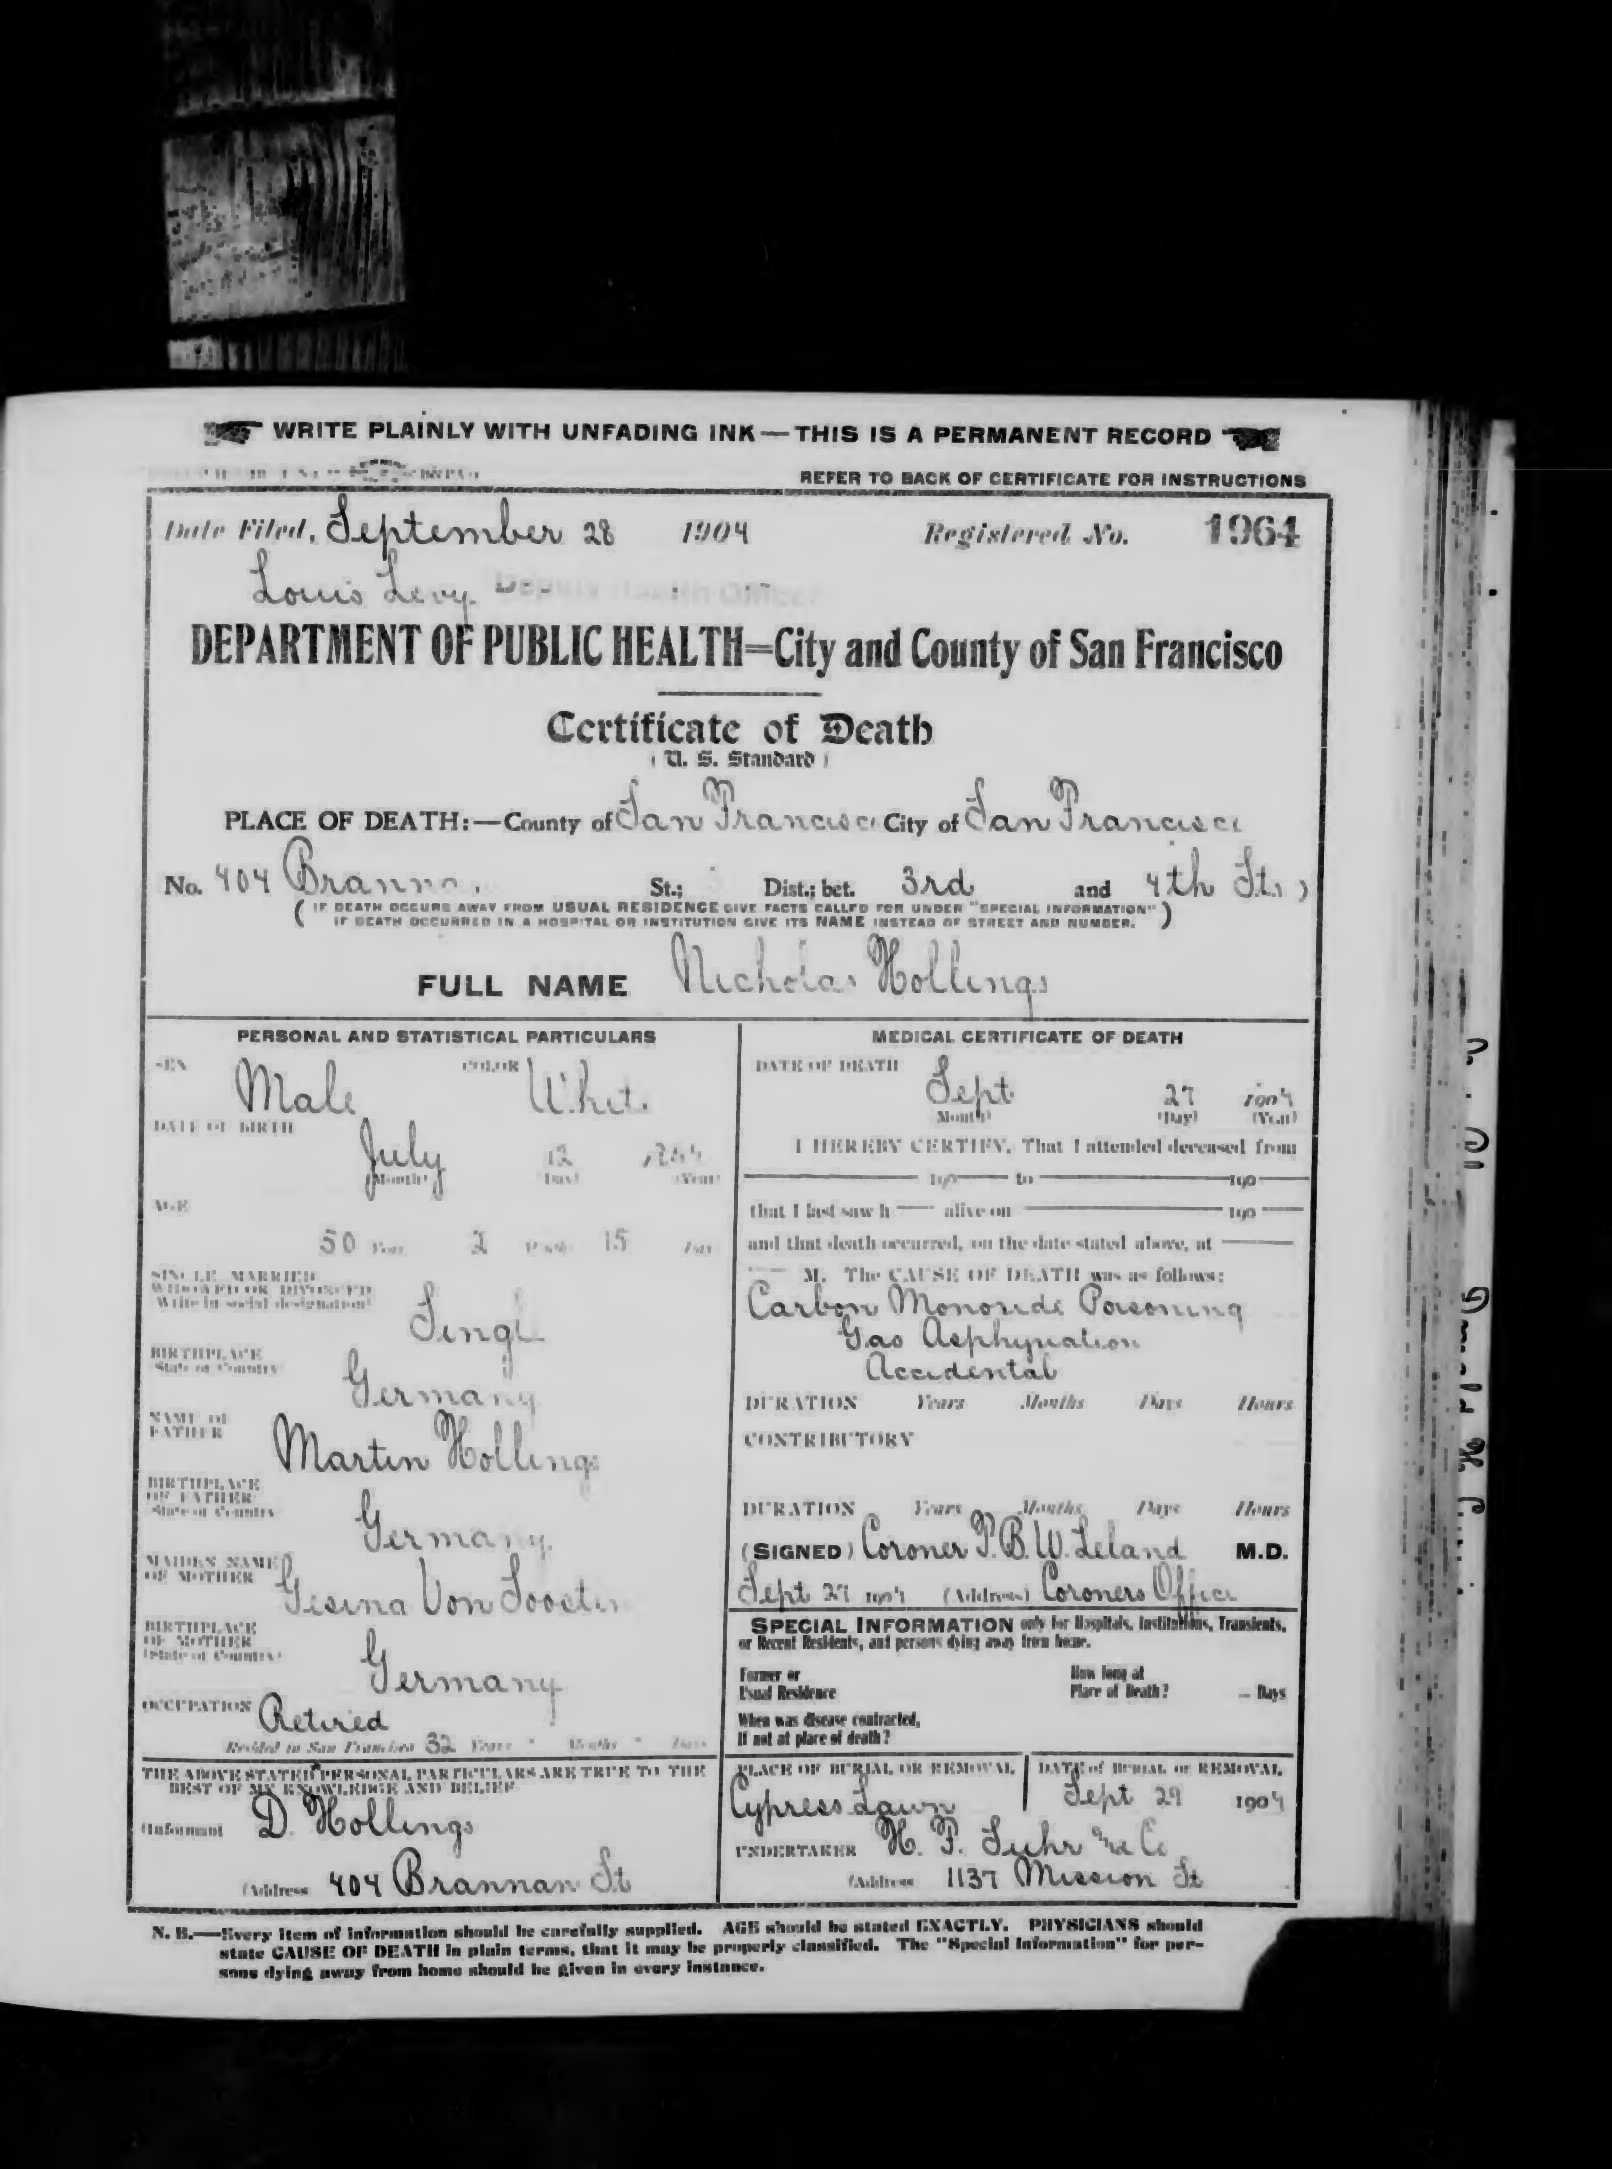 WRITE PLAINLY WITH UNFADING INK — THIS IS A PERMANENT RECORD
REFER TO BACK OF CERTIFICATE FOR INSTRUCTIONS
Date Filed, September 28 1904 Registered No. 1964
Louis Levy Deputy Health Officer
DEPARTMENT OF PUBLIC HEALTH=City and County of San Francisco
Certificate of Death
( U. S. Standard )
PLACE OF DEATH:—County of San Francisco City of San Francisco
No. 404 Branna St.; Dist.; bet. 3rd and 4th St. )
( IF DEATH OCCURS AWAY FROM USUAL RESIDENCE GIVE FACTS CALLED FOR UNDER "SPECIAL INFORMATION" )
IF DEATH OCCURRED IN A HOSPITAL OR INSTITUTION GIVE ITS NAME INSTEAD OF STREET AND NUMBER.
FULL NAME Nicholas Hollings
PERSONAL AND STATISTICAL PARTICULARS
SEX Male COLOR White
DATE OF BIRTH July 12
(Month) (Day) (Year)
AGE
50 Years 2 Months 15 Days
SINGLE, MARRIED
WIDOWED OR DIVORCED
Write in social designation Single
BIRTHPLACE
State or Country Germany
NAME OF
FATHER Martin Hollings
BIRTHPLACE
OF FATHER
State or Country Germany
MAIDEN NAME
OF MOTHER Gesina Von Soosten
BIRTHPLACE
OF MOTHER
(State or Country) Germany
OCCUPATION Retired
Resided in San Francisco 32 Years " Months " Days
THE ABOVE STATED PERSONAL PARTICULARS ARE TRUE TO THE
BEST OF MY KNOWLEDGE AND BELIEF
(Informant D. Hollings
(Address 404 Brannan St
MEDICAL CERTIFICATE OF DEATH
DATE OF DEATH Sept 27 1904
(Month) (Day) (Year)
I HEREBY CERTIFY, That I attended deceased from
190 to 190
that I last saw h alive on 190
and that death occurred, on the date stated above, at
M. The CAUSE OF DEATH was as follows:
Carbon Monoxide Poisoning
Gas Asphyxiation
Accidental
DURATION Years Months Days Hours
CONTRIBUTORY
DURATION Years Months Days Hours
(SIGNED) Coroner T. B. W. Leland M.D.
Sept 27 1904 (Address) Coroners Office
SPECIAL INFORMATION only for Hospitals, Institutions, Transients,
or Recent Residents, and persons dying away from home.
Former or How long at
Usual Residence Place of Death? Days
When was disease contracted,
If not at place of death?
PLACE OF BURIAL OR REMOVAL DATE of BURIAL or REMOVAL
Cypress Lawn Sept 29 1904
UNDERTAKER H. F. Suhr & Co
(Address 1137 Mission St
N. B.—Every item of information should be carefully supplied. AGE should be stated EXACTLY. PHYSICIANS should
state CAUSE OF DEATH in plain terms, that it may be properly classified. The "Special Information" for per-
sons dying away from home should be given in every instance.